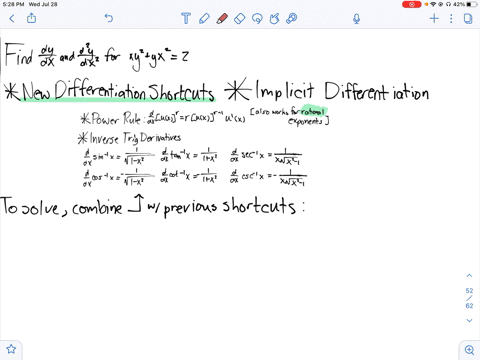 5:28 PM Wed Jul 28
42%
Find dy/dx and d²y/dx² for xy²+yx²=2
*New Differentiation Shortcuts *Implicit Differentiation
*Power Rule: d/dx[u(x)]^r=r[u(x)]^(r-1) u'(x) [also works for rational exponents]
*Inverse Trig Derivatives
d/dx sin⁻¹x=1/√(1-x²) d/dx tan⁻¹x=1/(1+x²) d/dx sec⁻¹x=1/(x√(x²-1))
d/dx cos⁻¹x=-1/√(1-x²) d/dx cot⁻¹x=-1/(1+x²) d/dx csc⁻¹x=-1/(x√(x²-1))
To solve, combine ⤴ w/ previous shortcuts:
52
/
62